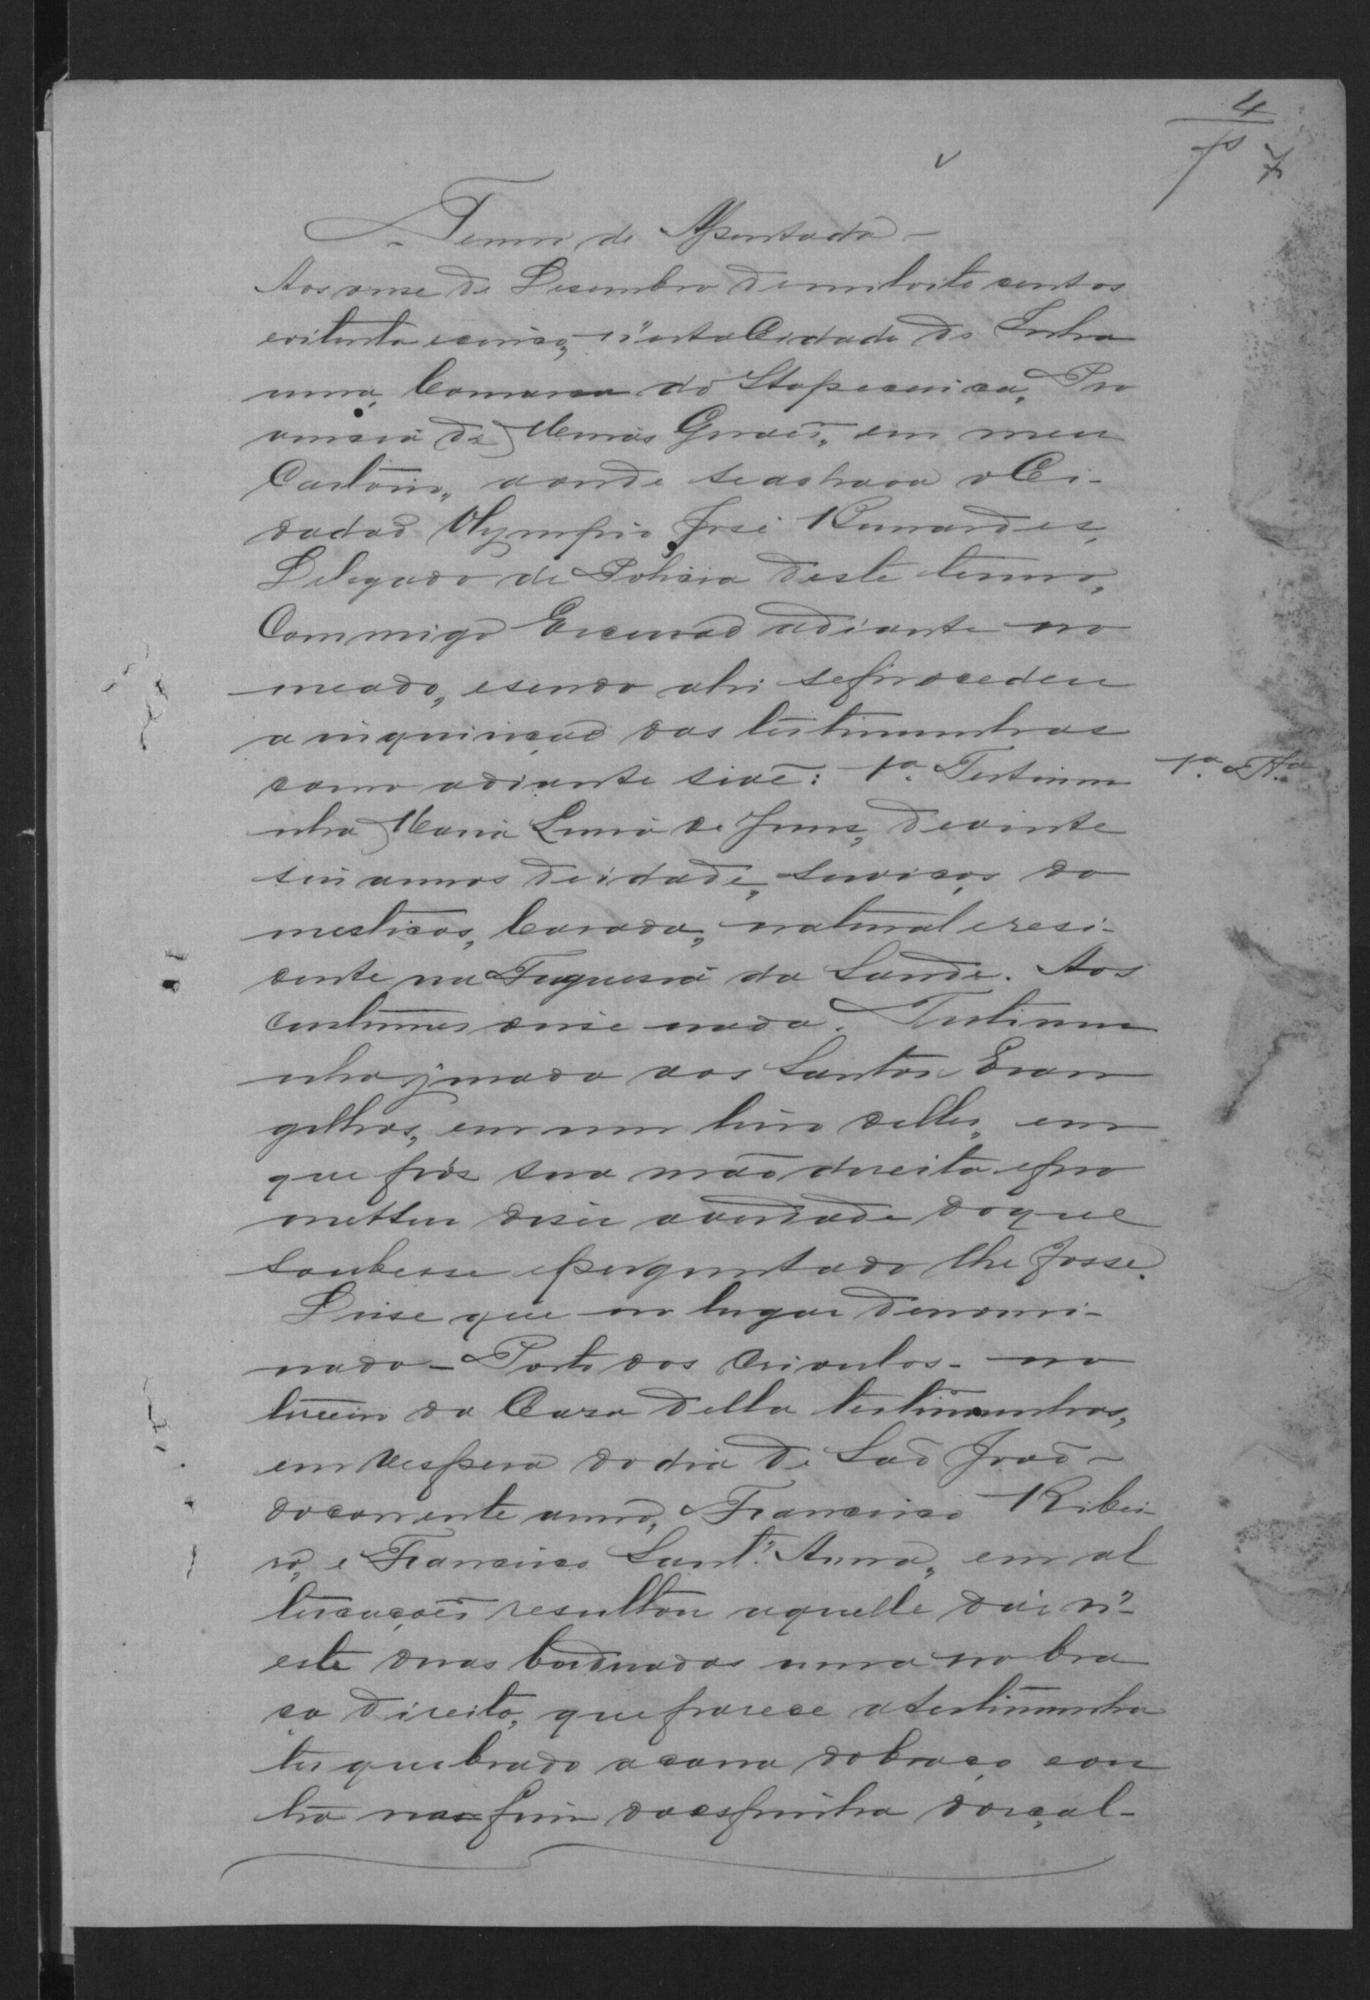 4
fs 7
Termo de Assentada
Aos onse de Desembro de mil oito centos
e oitenta e cinco, n'esta Cidade de Inha
uma, Comarca do Itapecerica, Pro
vincia de Minas Geraes, em meu
Cartorio, aonde se achava o Ci-
dadaõ Olympio José Bernardes,
Delegado de Policia deste termo,
Commigo Escrivaõ adiante no
meado, e sendo ahi se procedeu
a inquiriçaõ das testimunhas
como adiante se vê: 1ª Testimu 1ª Tª
nha Maria de Jesus, de vinte
seis annos de idade, serviços do
mesticos, Casada, natural e resi-
dente na Freguesia da Saude. Aos
custumes disse nada. Testimu
nha jurada aos Santos Evan
gelhos, em um livro delles, em
que pôs sua mão direita e pro
metteu diser a verdade do que
soubesse e perguntado lhe fosse.
Disse que no lugar denomi-
nado - Porto dos Crioulos - no
terreiro da Casa della testimunhas,
em vespera do dia de Saõ Joaõ
do corrente anno, Francisco Ribei
ro, e Francisco Sant'Anna, em al
tercaçoẽs resultou aquelle dar n'-
este duas bordoadas uma no bra
ço direito, que parece a testimunha
ter quebrado a cana do braço e ou
tra no fim da espinha dorçal-